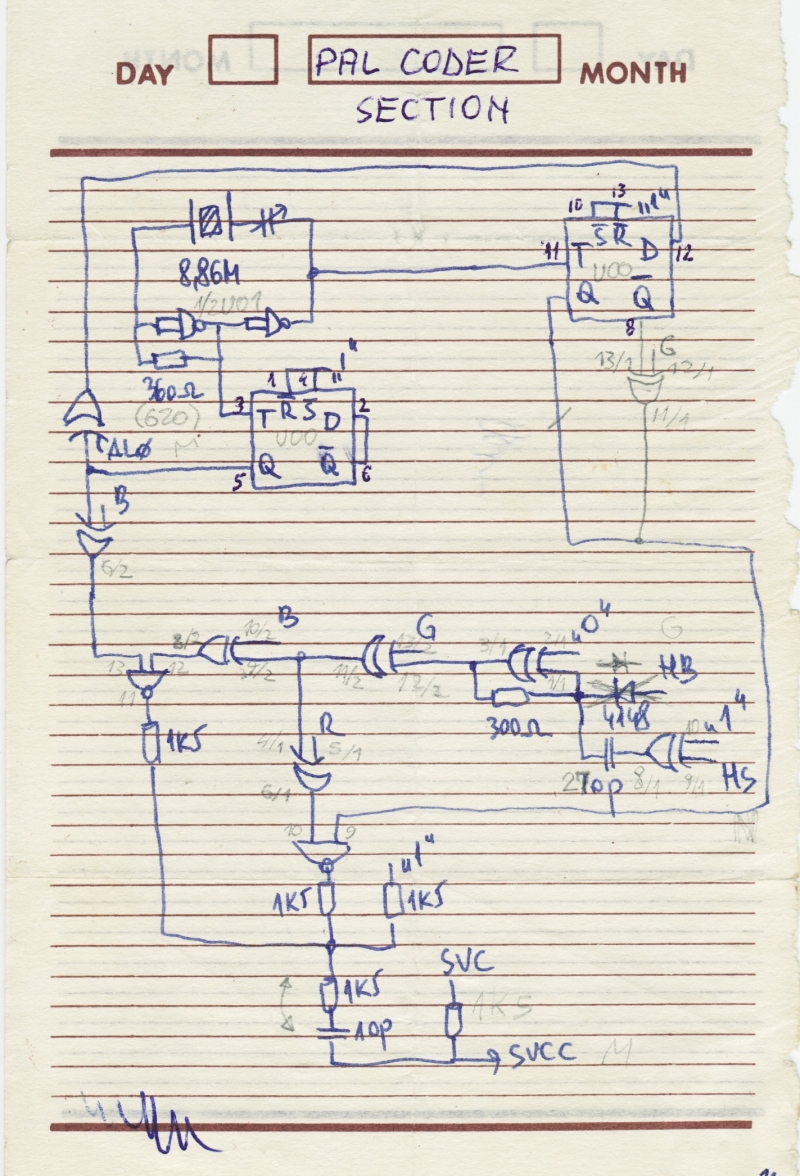 DAY PAL CODER MONTH
SECTION
10 13 "1"
11 T S R D 12
U00
Q Q
8
8,86M
1/2U01
13/1 G 12/1
11/1
360Ω
(620)
M
1 4 "1"
3 T R S D 2
U00
5 Q Q 6
AL0
B
6/2
8/2 10/2 B
9/2
13 12
11
1K5
G
13/2
11/2 12/2
3/1 2/1 "0"
1/1
300Ω
G
HB
4148
10 "1"
27p
8/1 9/1 HS
N
4/1 R 5/1
6/1
10 9
1K5
"1"
1K5
1K5
10p
SVC
1K5
SVCC M